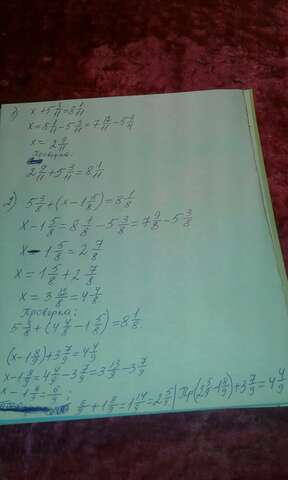 1) x+5 3/11=8 1/11
x=8 1/11-5 3/11=7 12/11-5 3/11
x= 2 9/11
Проверка:
2 9/11+5 3/11=8 1/11
2) 5 3/8+(x-1 5/8)=8 1/8
x-1 5/8=8 1/8-5 3/8=7 9/8-5 3/8
x-1 5/8=2 7/8
x=1 5/8+2 7/8
x=3 12/8=4 4/8
Проверка:
5 3/8+(4 4/8-1 5/8)=8 1/8
(x-1 8/9)+3 7/9=4 4/9
x-1 8/9=4 4/9-3 7/9=3 13/9-3 7/9
x-1 8/9=6/9;
6/9+1 8/9=1 14/9=2 5/9| Пр(2 5/9-1 8/9)+3 7/9=4 4/9